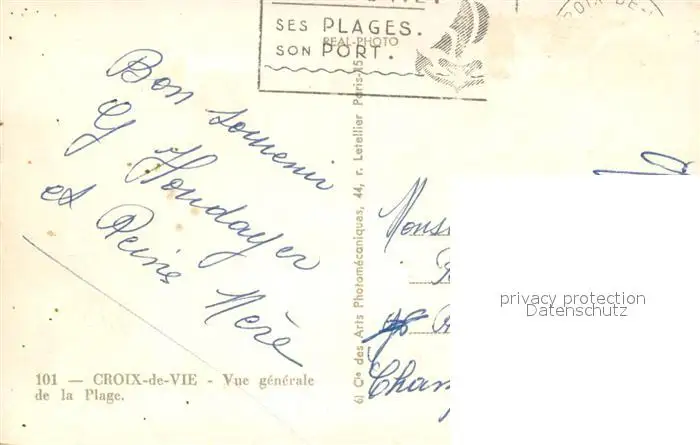 SES PLAGES.
SON PORT.
REAL-PHOTO
Bon souvenir
G Houdayer
et Reine Mère
101 — CROIX-de-VIE - Vue générale
de la Plage.
6) Cie des Arts Photomécaniques, 44, r. Letellier Paris-15
privacy protection
Datenschutz